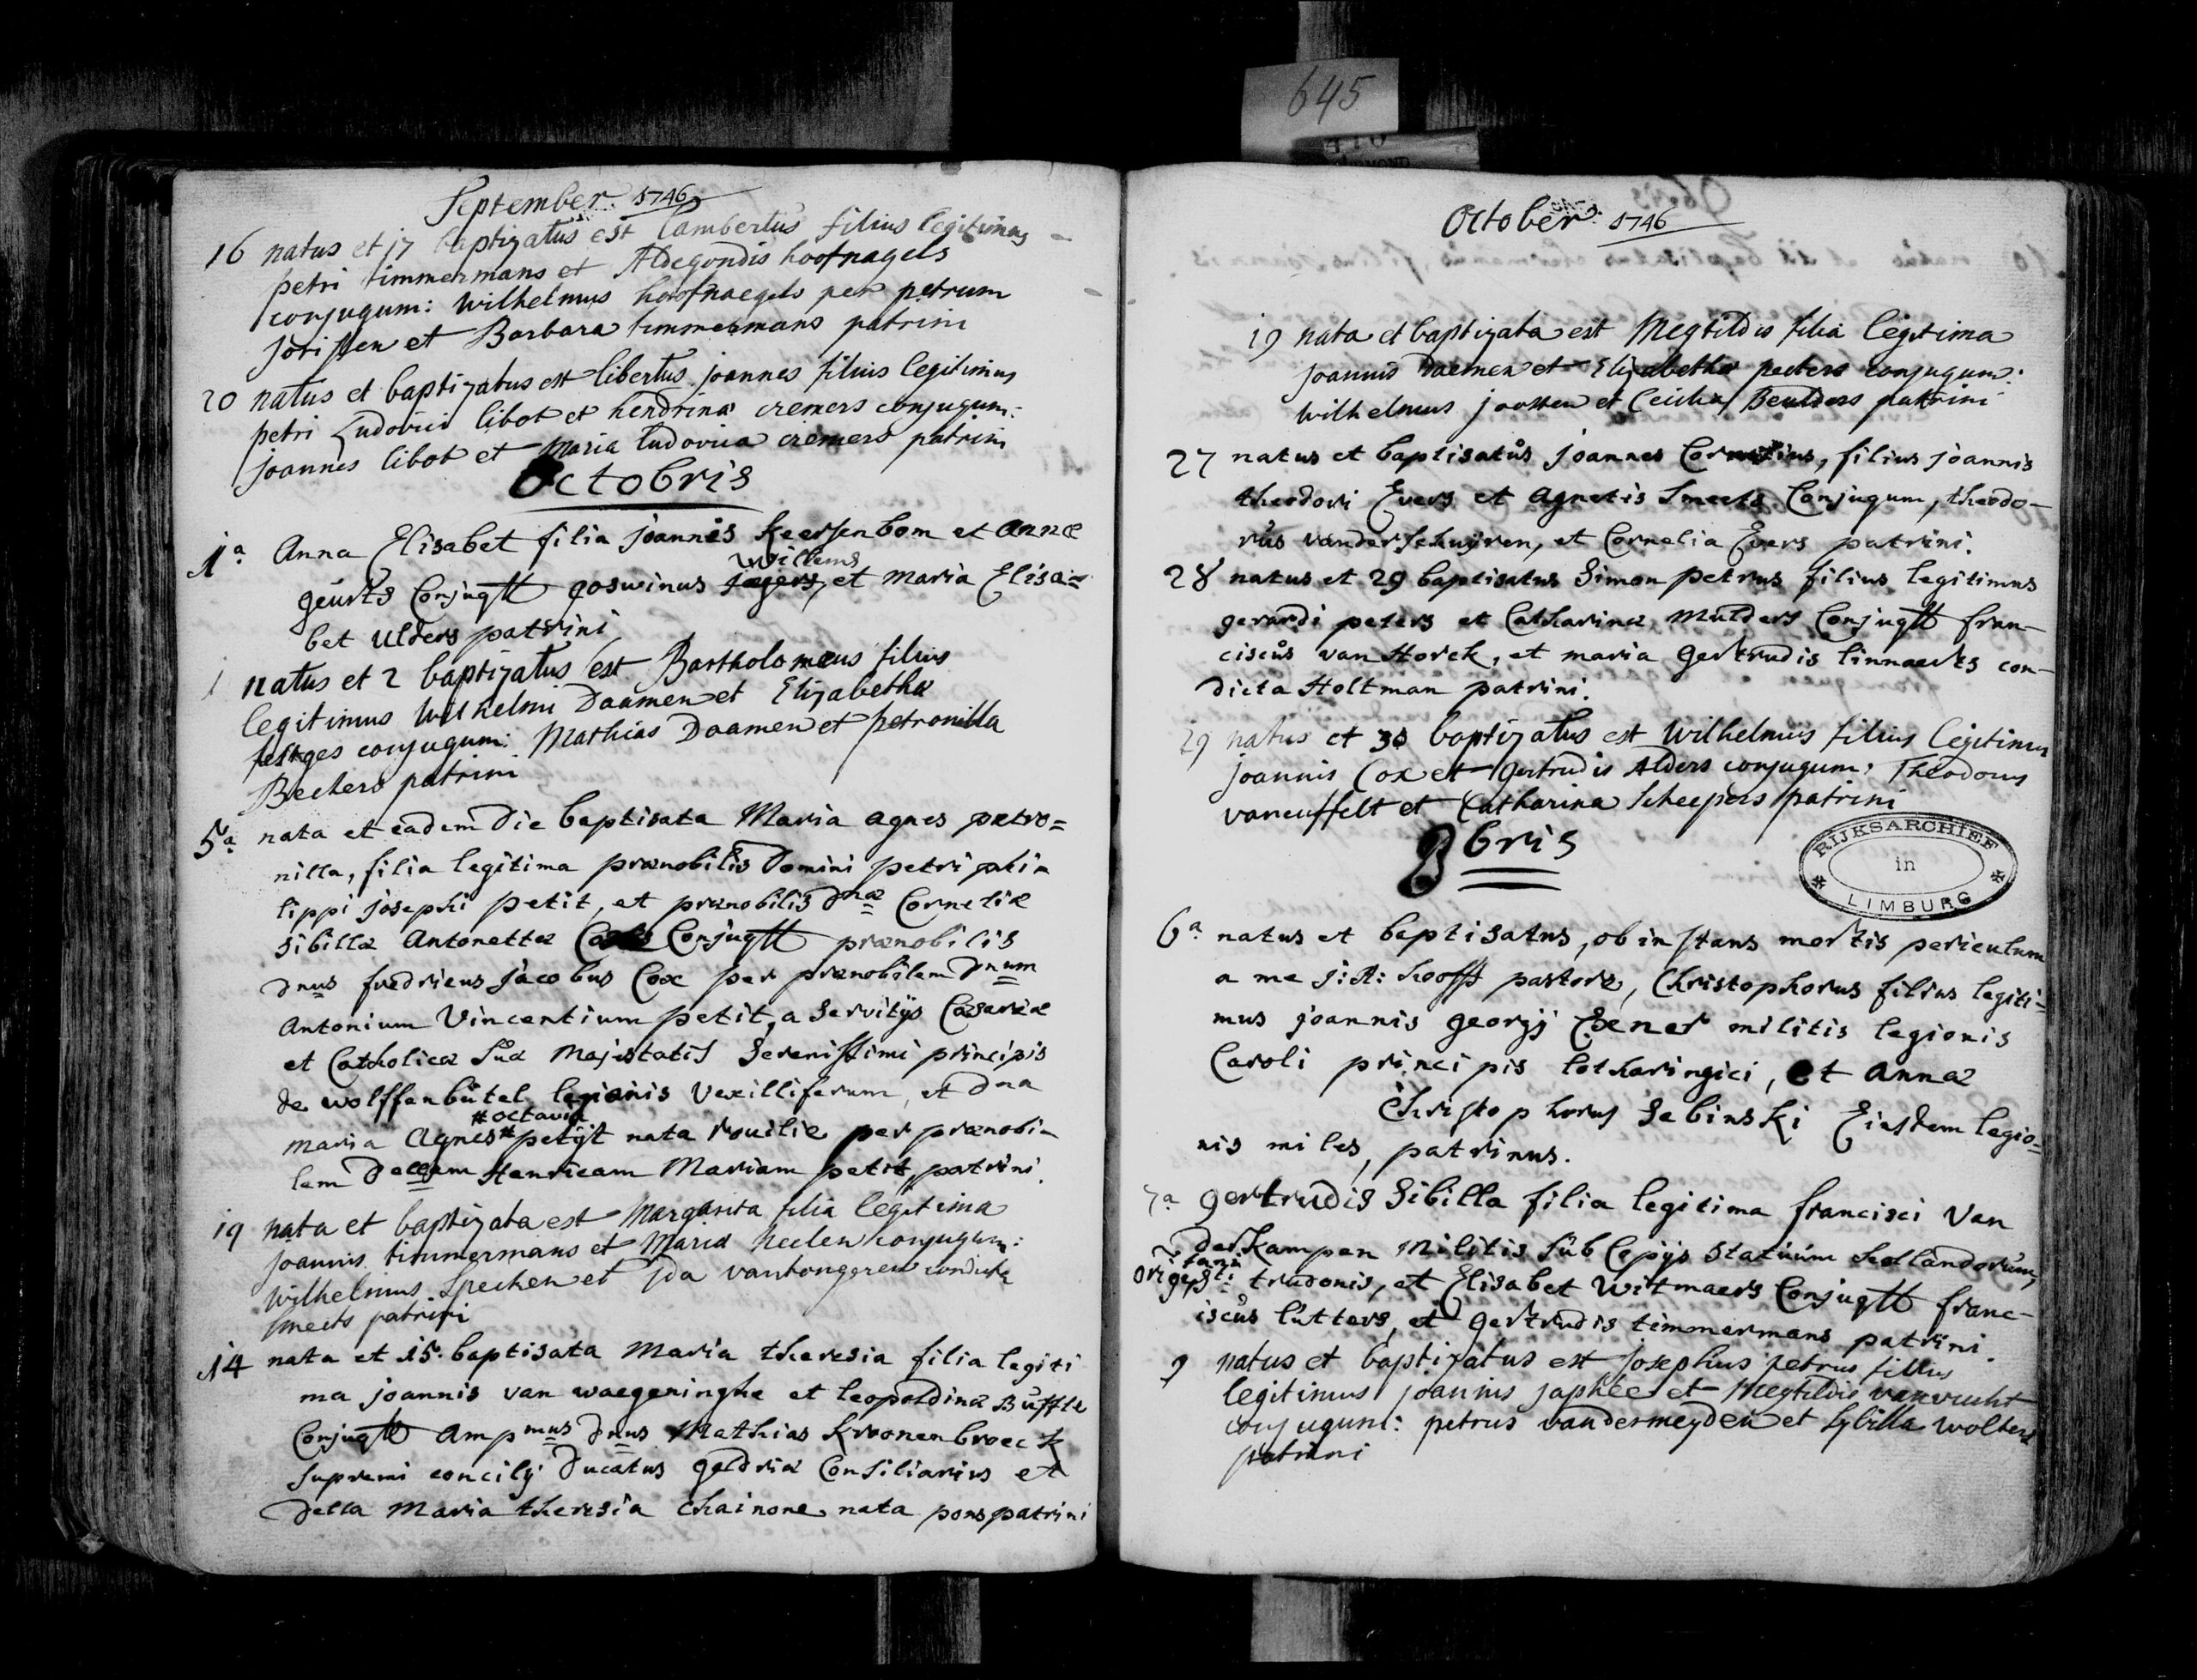 645
September 1746
16 natus et 17 baptizatus est Lambertus filius legitimus
petri timmermans et Aldegondis hoofnagels
conjugum: Wilhelmus hoofnaegels per petrum
jorissen et Barbara timmermans patrini
20 natus et baptizatus est libertus joannes filius legitimus
petri Ludovici libot et hendrina cremers conjugum:
joannes libot et Maria ludovica cremers patrini
Octobris
1a Anna Elisabet filia joannis Keersenbom et Annæ
Willems
geurts Conjugtt goswinus jegers, et maria Elisa=
bet Ulders patrini
1 natus et 2 baptizatus est Bartholomeus filius
legitimus Wilhelmi Daamen et Elizabetha
conjugum: Mathias Daamen et petronilla
Beckers patrini
5a nata et eadem die baptisata Maria agnes petro=
nilla, filia legitima prænobilis Domini petri phi=
lippi josephi petit, et prænobilis dnæ Corneliæ
sibillæ Antonettæ Conjugtt prænobilis
dnus fredricus jacobus Cox per prænobilem dnum
Antonium Vincentium petit, a servitys Cæsareæ
et Catholicæ suæ Majestatis serenissimi principis
de wolffenbutel legionis Vexilliferum, et dna
#octavia
maria Agnes# petijt nata rouilie per prænobi=
lem dellam Henricam Mariam petit, patrini.
19 nata et baptizata est Margarita filia legitima
joannis timmermans et Maria heelen conjugum:
Wilhelmus Specken et Ida vantongeren condicta
smeets patrini
14 nata et 15. baptisata Maria theresia filia legiti
ma joannis van waegeninghe et leopoldinæ Buffle
Conjugtt Ampmus dnus Mathias Kroonenbroeck
supremi concily Ducatus geldriæ Consiliarius et
della Maria theresia Chainone nata pons patrini
October 1746
19 nata et baptizata est Megtildis filia legitima
joannis Daemen et Elizabetha peeters conjugum:
Wilhelmus joosten et Ceicilia Beulders patrini
27 natus et baptisatus joannes Cornelius, filius joannis
theodori Evers et Agnetis Smeets Conjugum, theodo=
rus vanderschuyren, et Cornelia Evers patrini.
28 natus et 29 baptisatus Simon petrus filius legitimus
gerardi peters et Catharinæ Mulders Conjugtt fran=
ciscus van Horck, et maria gertrudis linnaerts con=
dicta Holtman patrini.
29 natus et 30 baptizatus est Wilhelmus filius legitimus
joannis Cox et gertrudis Alders conjugum: Theodorus
vaneuffelt et Catharina Scheepers patrini
9bris
RIJKSARCHIEF
in
LIMBURG
6a natus et baptisatus, ob instans mortis periculum
a me j: A: hooft pastore, Christophorus filius legiti=
mus joannis georgij Exener militis legionis
Caroli principis lotharingici, et annæ
Christophorus Sebinski Eiusdem legio=
nis miles, patrinus.
7a gertrudis Sibilla filia legitima francisci Van
derkampen militis sub Copijs statuum hollandorum,
orig: st: trudonis, et Elisabet Witmaers Conjugtt franc=
iscus lutters, et gertrudis timmermans patrini.
9 natus et baptizatus est Josephus petrus filius
legitimus joannis japhée et Megtildis vanvucht
conjugum: petrus vandermeyden et Sybilla Wolters
patrini